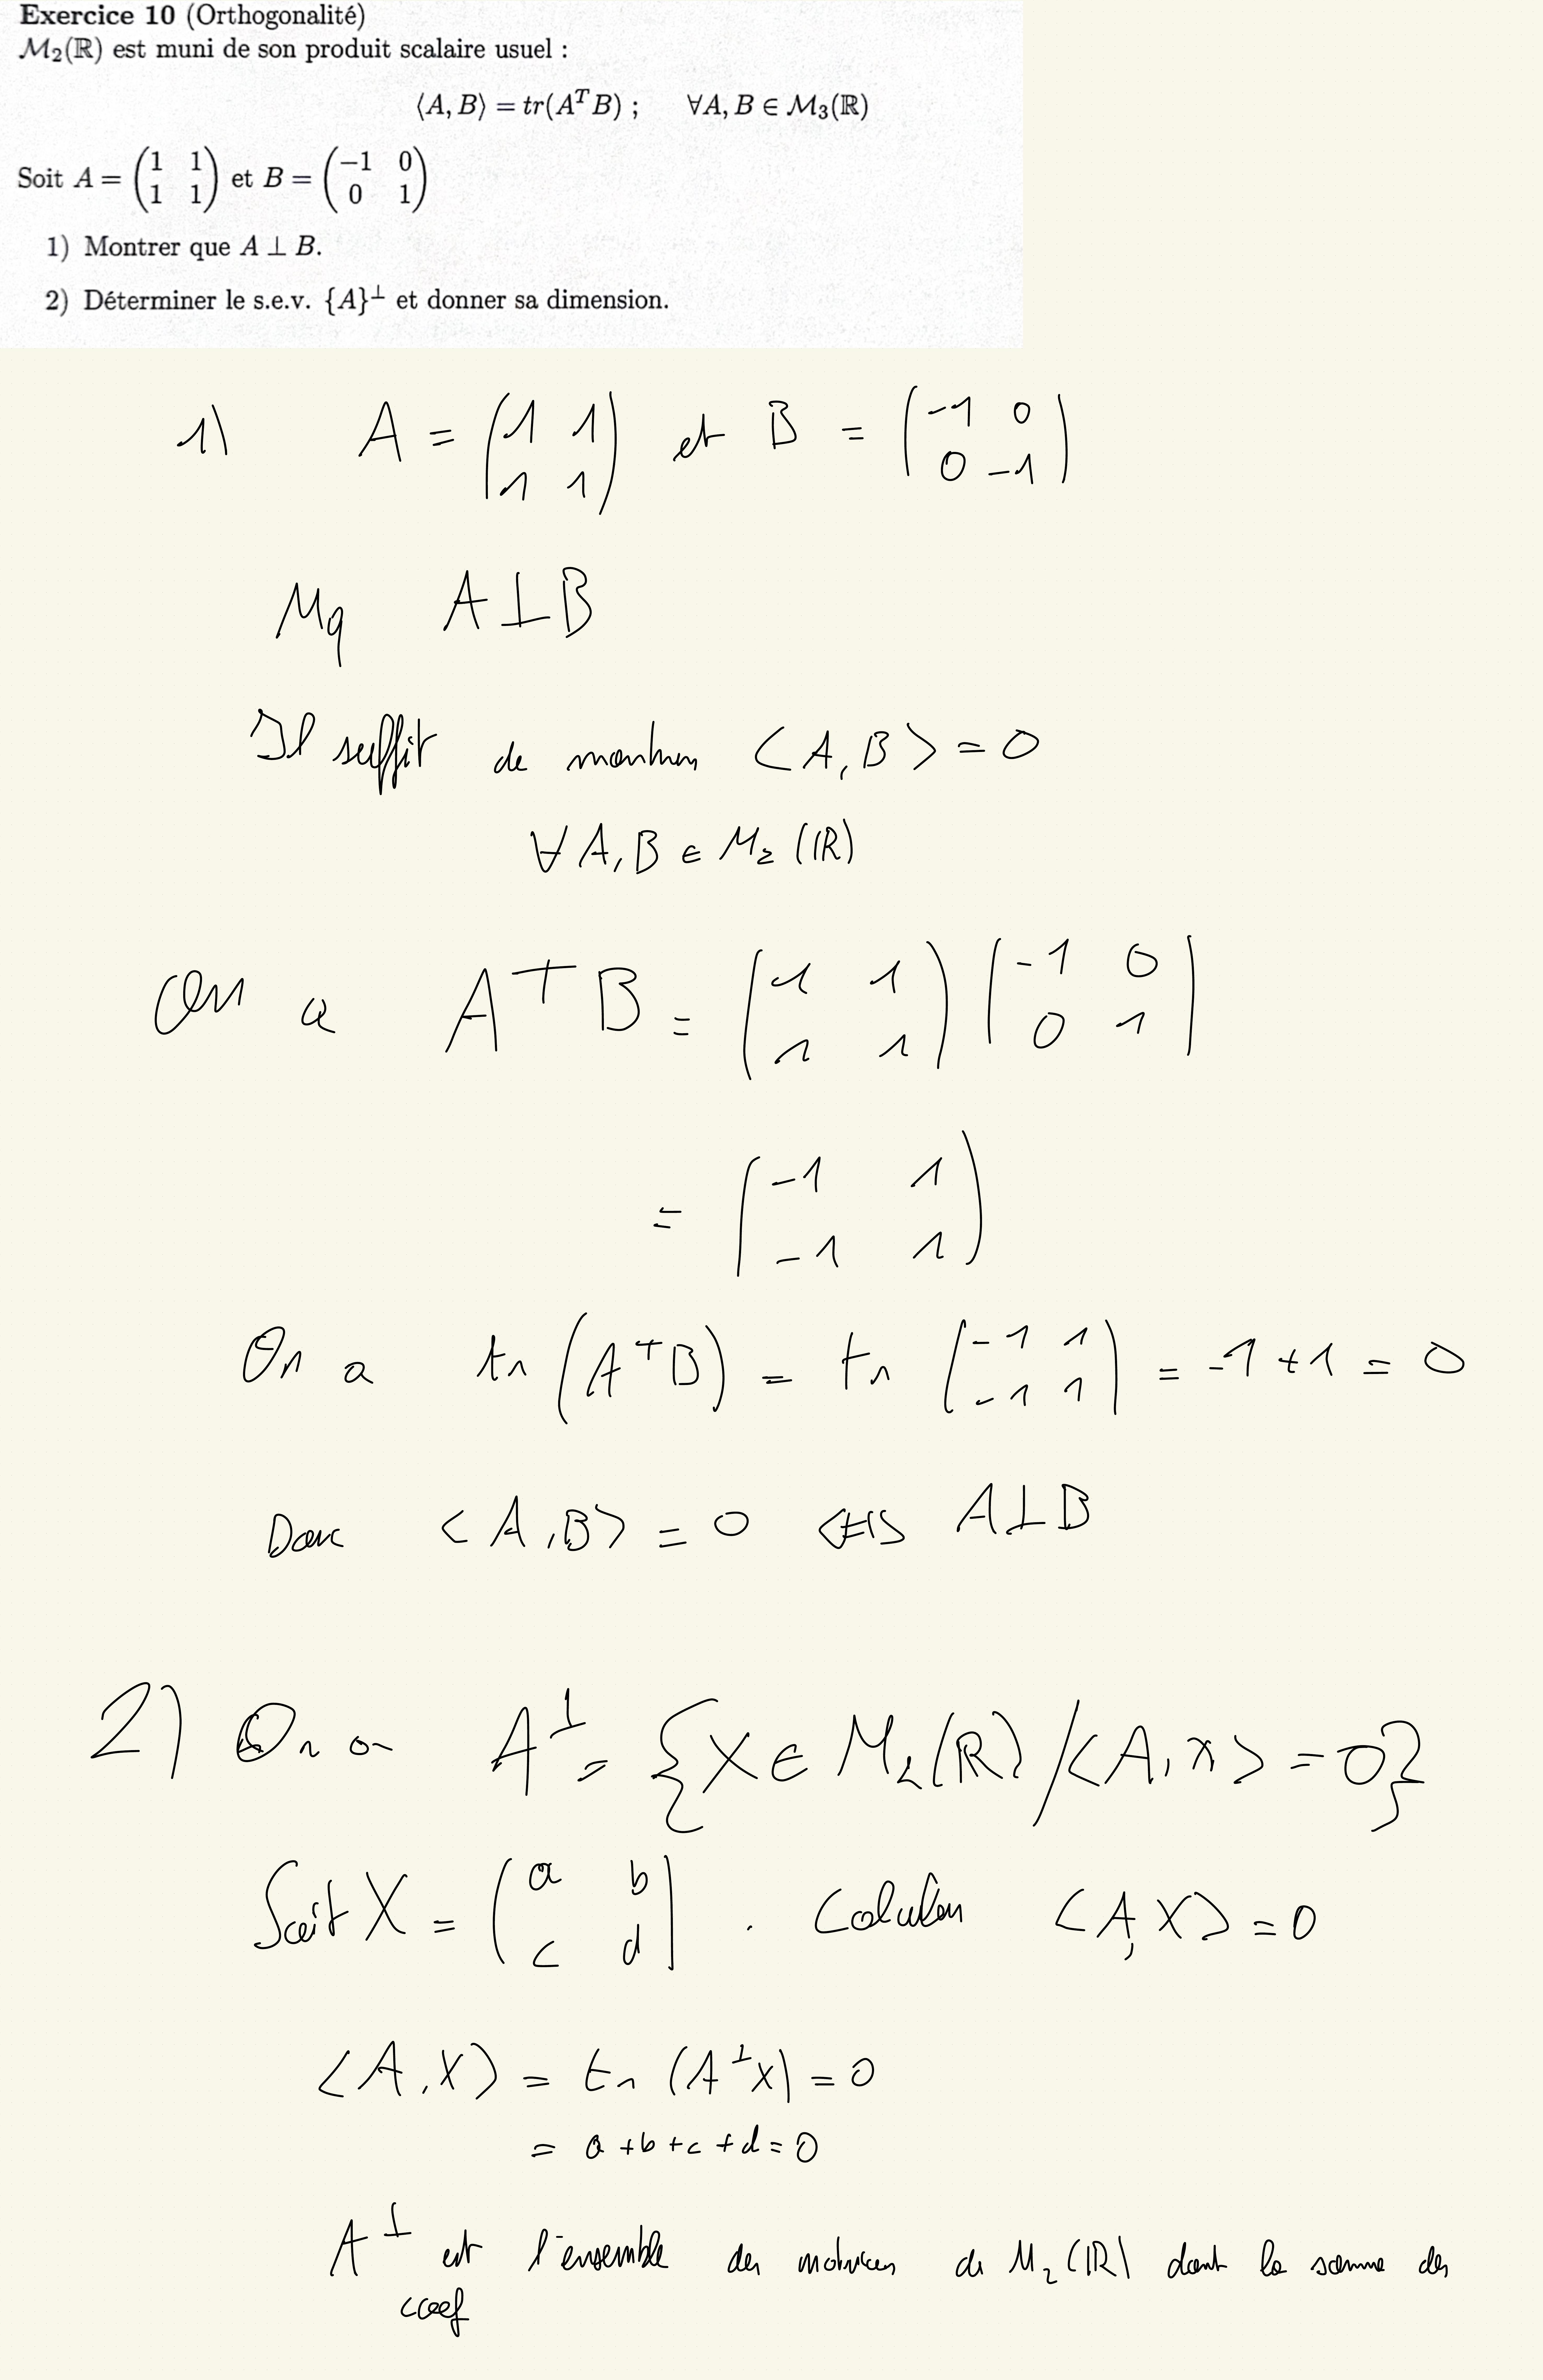 Exercice 10 (Orthogonalité)
M₂(ℝ) est muni de son produit scalaire usuel :
⟨A, B⟩ = tr(AᵀB) ; ∀A, B ∈ M₃(ℝ)
Soit A = (1 1 ; 1 1) et B = (−1 0 ; 0 1)
1) Montrer que A ⊥ B.
2) Déterminer le s.e.v. {A}^⊥ et donner sa dimension.
1) A = (1 1 ; 1 1) et B = (−1 0 ; 0 −1)
Mq A⊥B
Il suffit de montrer <A,B> = 0
∀A,B ∈ M₂(ℝ)
On a AᵀB = (1 1 ; 1 1) (−1 0 ; 0 1)
= (−1 1 ; −1 1)
On a tr(AᵀB) = tr (−1 1 ; −1 1) = −1+1 = 0
Donc <A,B> = 0 <=> A⊥B
2) On a A^⊥ = {X ∈ M₂(ℝ) / <A,x> = 0}
Soit X = (a b ; c d) . Calculon <A,X> = 0
<A,X> = tr (A^⊥x) = 0
= a+b+c+d=0
A^⊥ est l'ensemble des matrices de M₂(ℝ) dont la somme des
coef